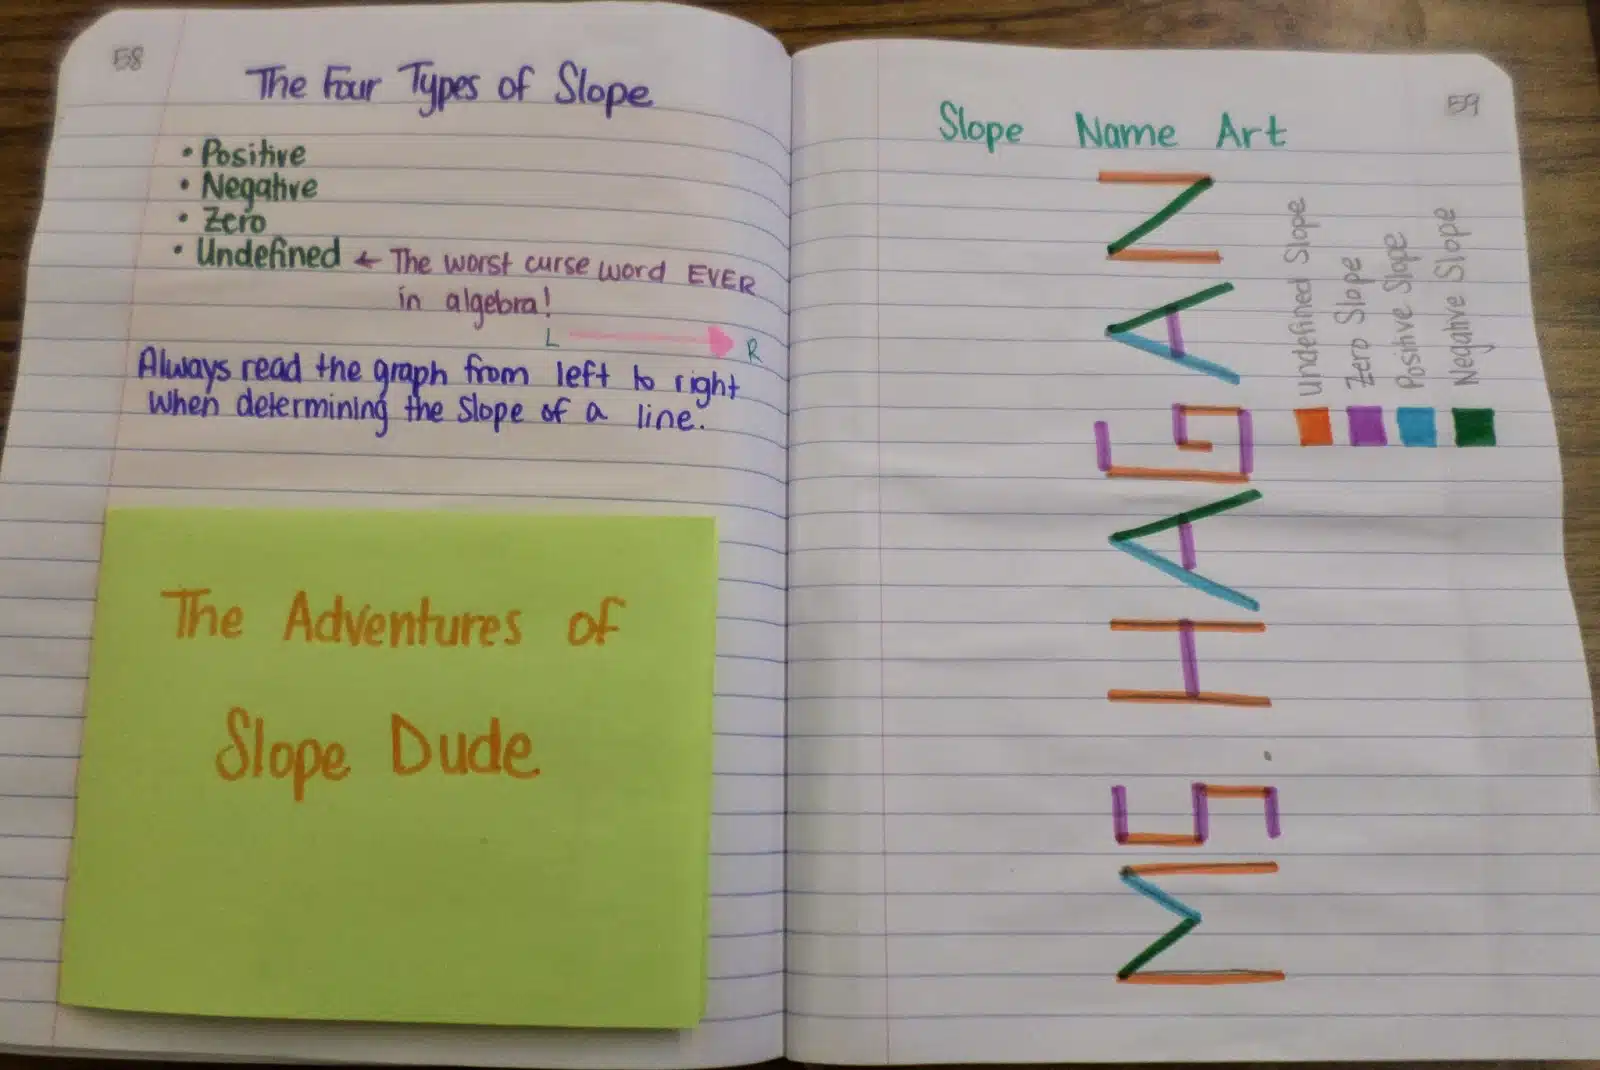 58
The Four Types of Slope
• Positive
• Negative
• Zero
• Undefined ← The worst curse word EVER
in algebra!
L → R
Always read the graph from left to right
when determining the slope of a line.
The Adventures of
Slope Dude
59
Slope Name Art
MS. HAGAN
Undefined Slope
Zero Slope
Positive Slope
Negative Slope